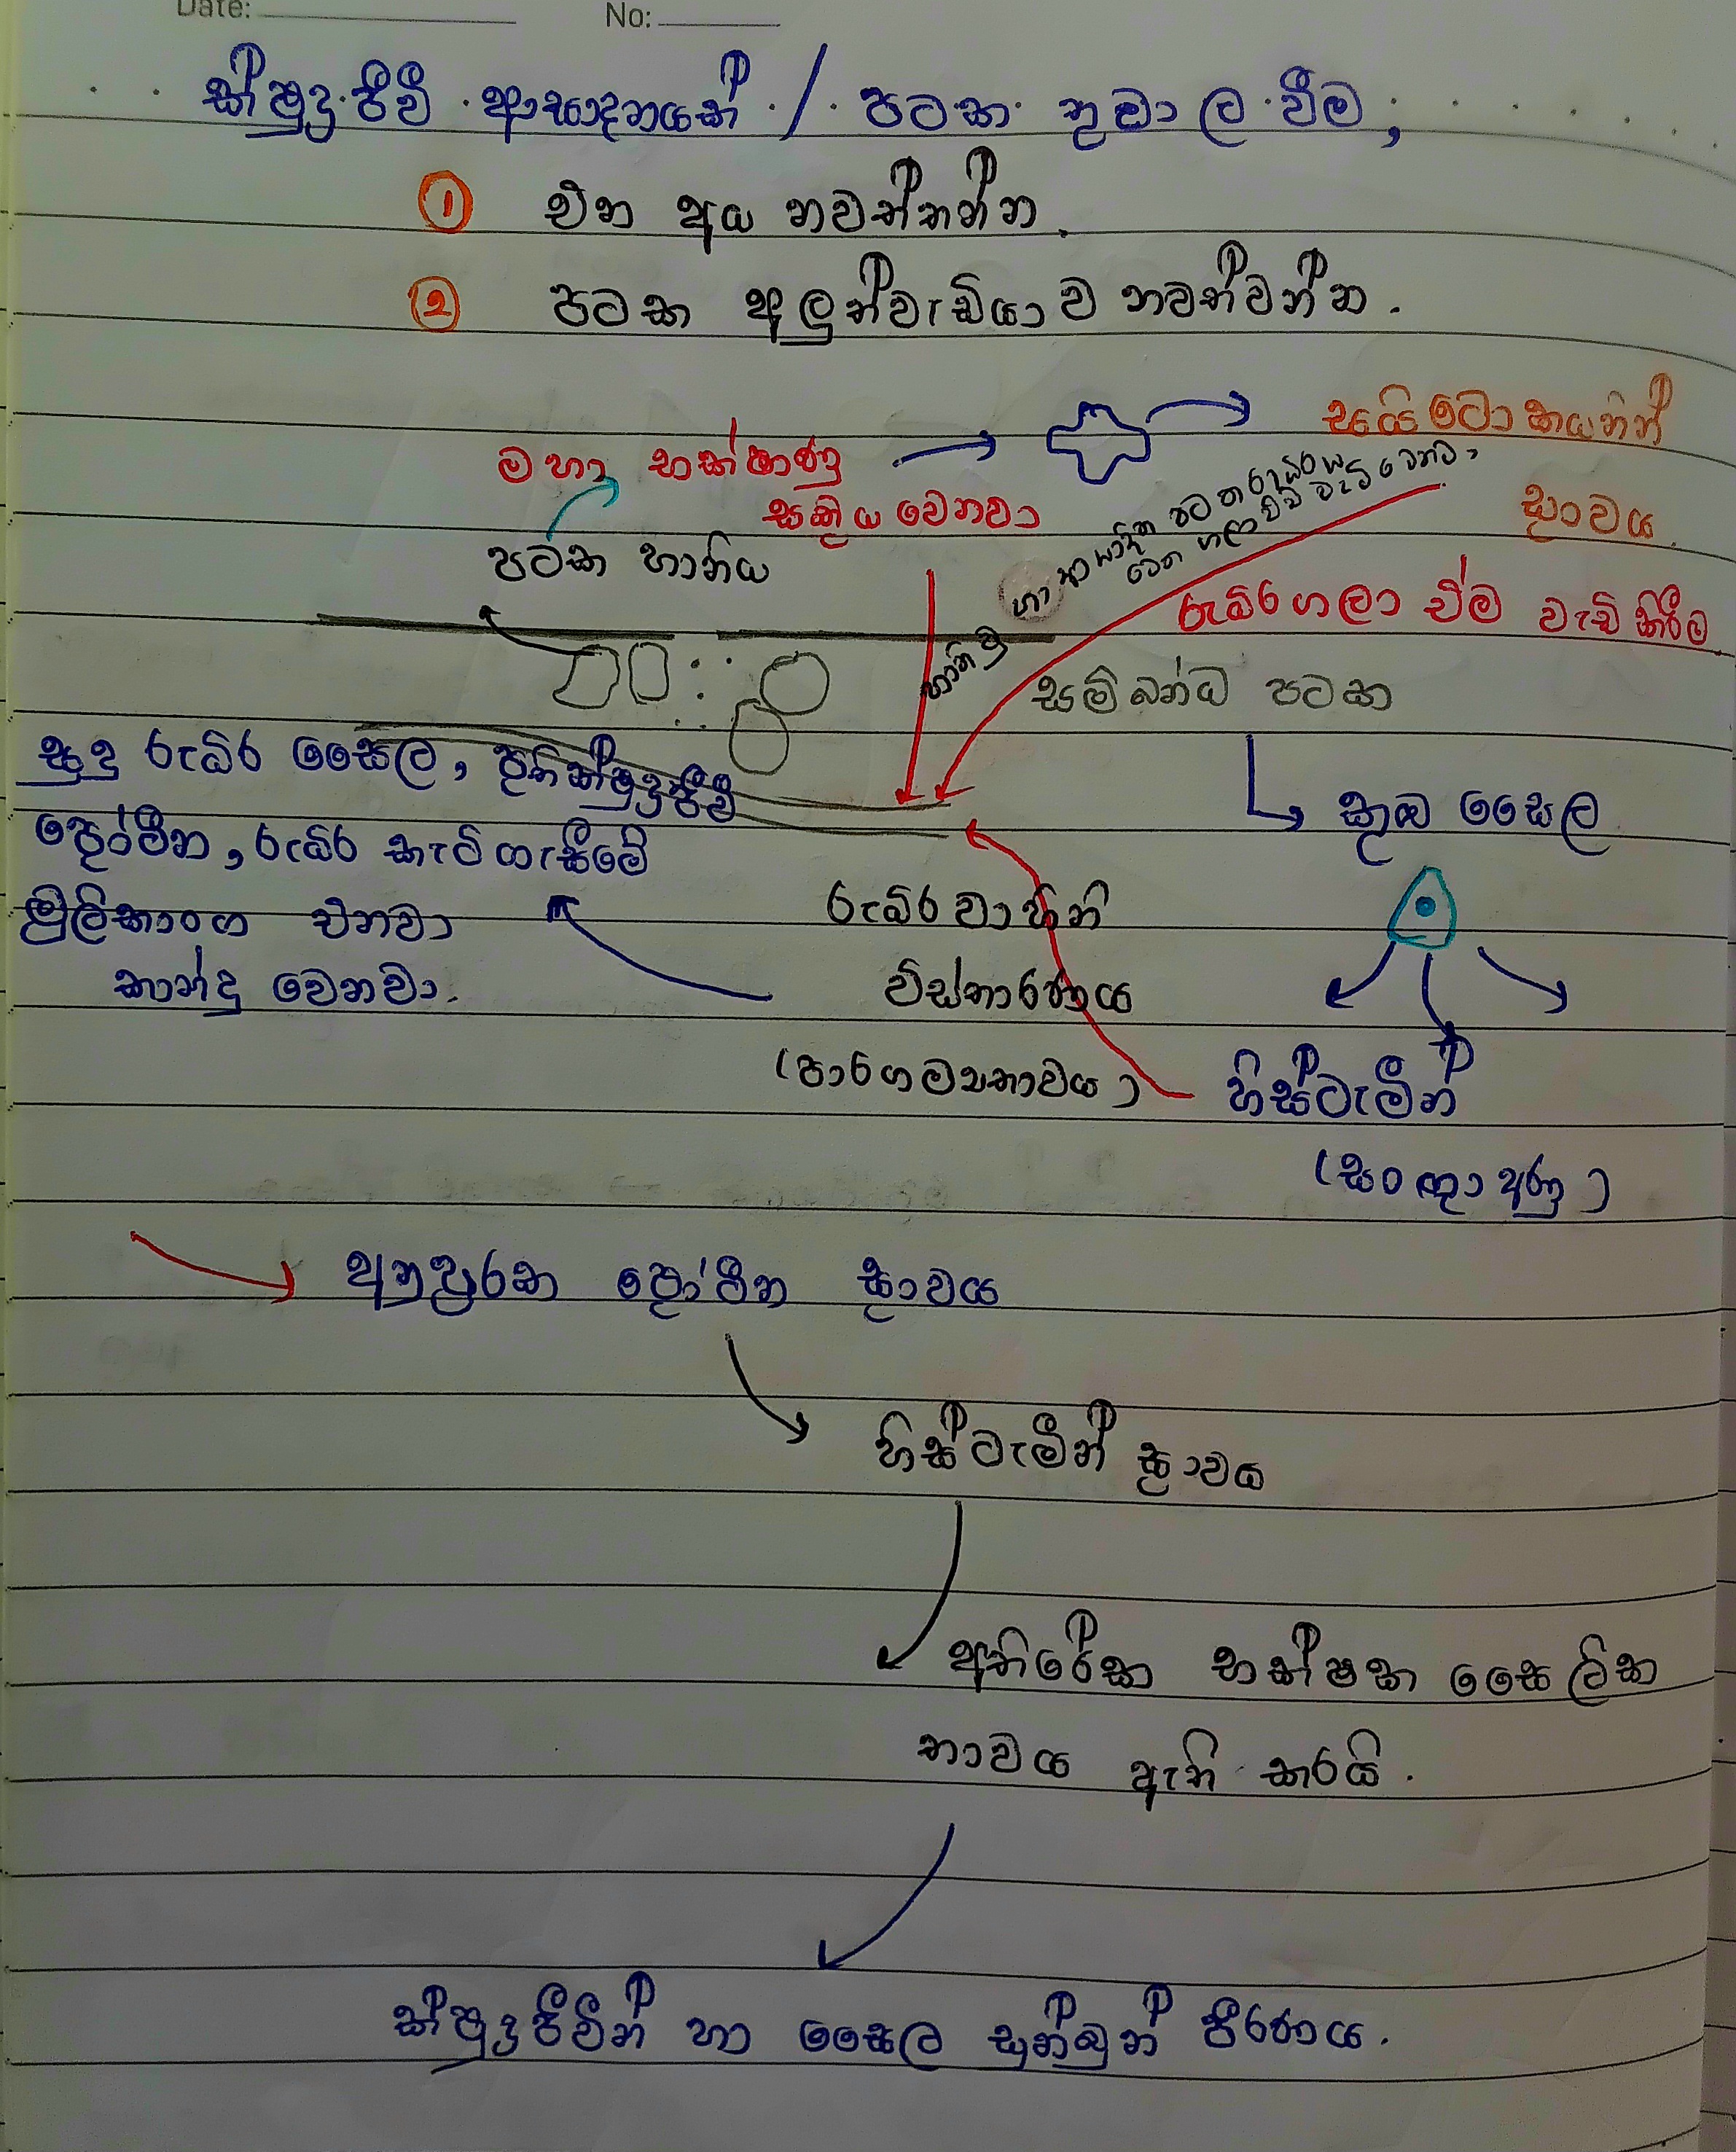 Date: No:
ක්ෂුද්‍රජීවී ආසාදනයක් / පටක තුවාල වීම,
① එන අය නවත්තන්න.
② පටක අලුත්වැඩියාව නවත්වන්න.
සයිටොකයනින්
මහා භක්ෂාණු
සක්‍රිය වෙනවා
ස්‍රාවය
පටක හානිය
හානි වූ හා ආසාදිත පටක
රුධිර ගලා ඒම වැඩි කිරීම
සම්බන්ධ පටක
සුදු රුධිර සෛල, ප්‍රතික්ෂුද්‍රජීවී
කුඹ සෛල
ප්‍රෝටීන, රුධිර කැටි ගැසීමේ
මූලිකාංග එනවා
කාන්දු වෙනවා.
රුධිර වාහිනි
විස්තාරණය
(පාරගම්‍යතාවය)
හිස්ටැමීන්
(සංඥා අණු)
අනුපූරක ප්‍රෝටීන ස්‍රාවය
හිස්ටැමීන් ස්‍රාවය
අතිරේක භක්ෂක සෛලික
තාවය ඇති කරයි.
ක්ෂුද්‍රජීවීන් හා සෛල සුන්බුන් ජීරණය.